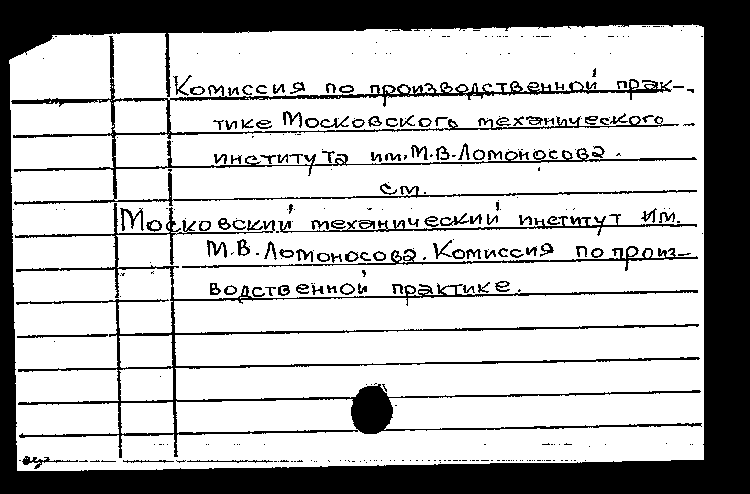 Комиссия по производственной прак-
тике Московского механического
института им. М.В. Ломоносова.
см.
Московский механический институт им.
М.В. Ломоносова. Комиссия по произ-
водственной практике.